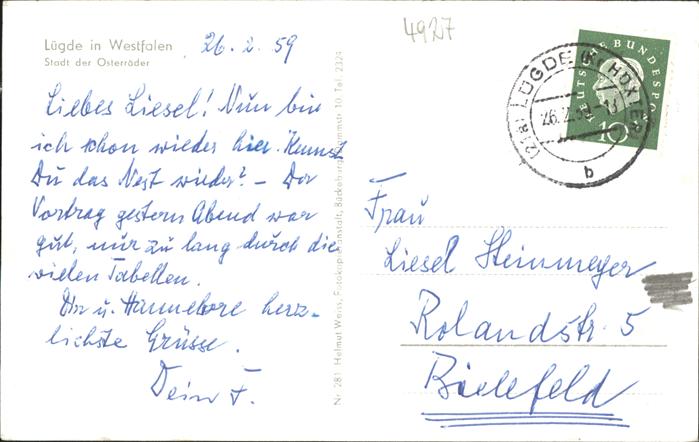 4927
Lügde in Westfalen
Stadt der Osterräder
26. 2. 59
Liebes Liesel! Nun bin
ich schon wieder hier. Kennst
Du das Nest wieder? – Der
Vortrag gestern Abend war
gut, nur zu lang durch die
vielen Tabellen.
Dir u. Hannelore herz-
lichste Grüsse.
Dein F.
Nr. 281 Helmut Weiss, Bückeburg, 10 Tel. 2324
DEUTSCHE BUNDESPOST
10
(21a) LÜGDE (KR HÖXTER)
26.2.59
b
Frau
Liesel Steinmeyer
Rolandstr. 5
Bielefeld